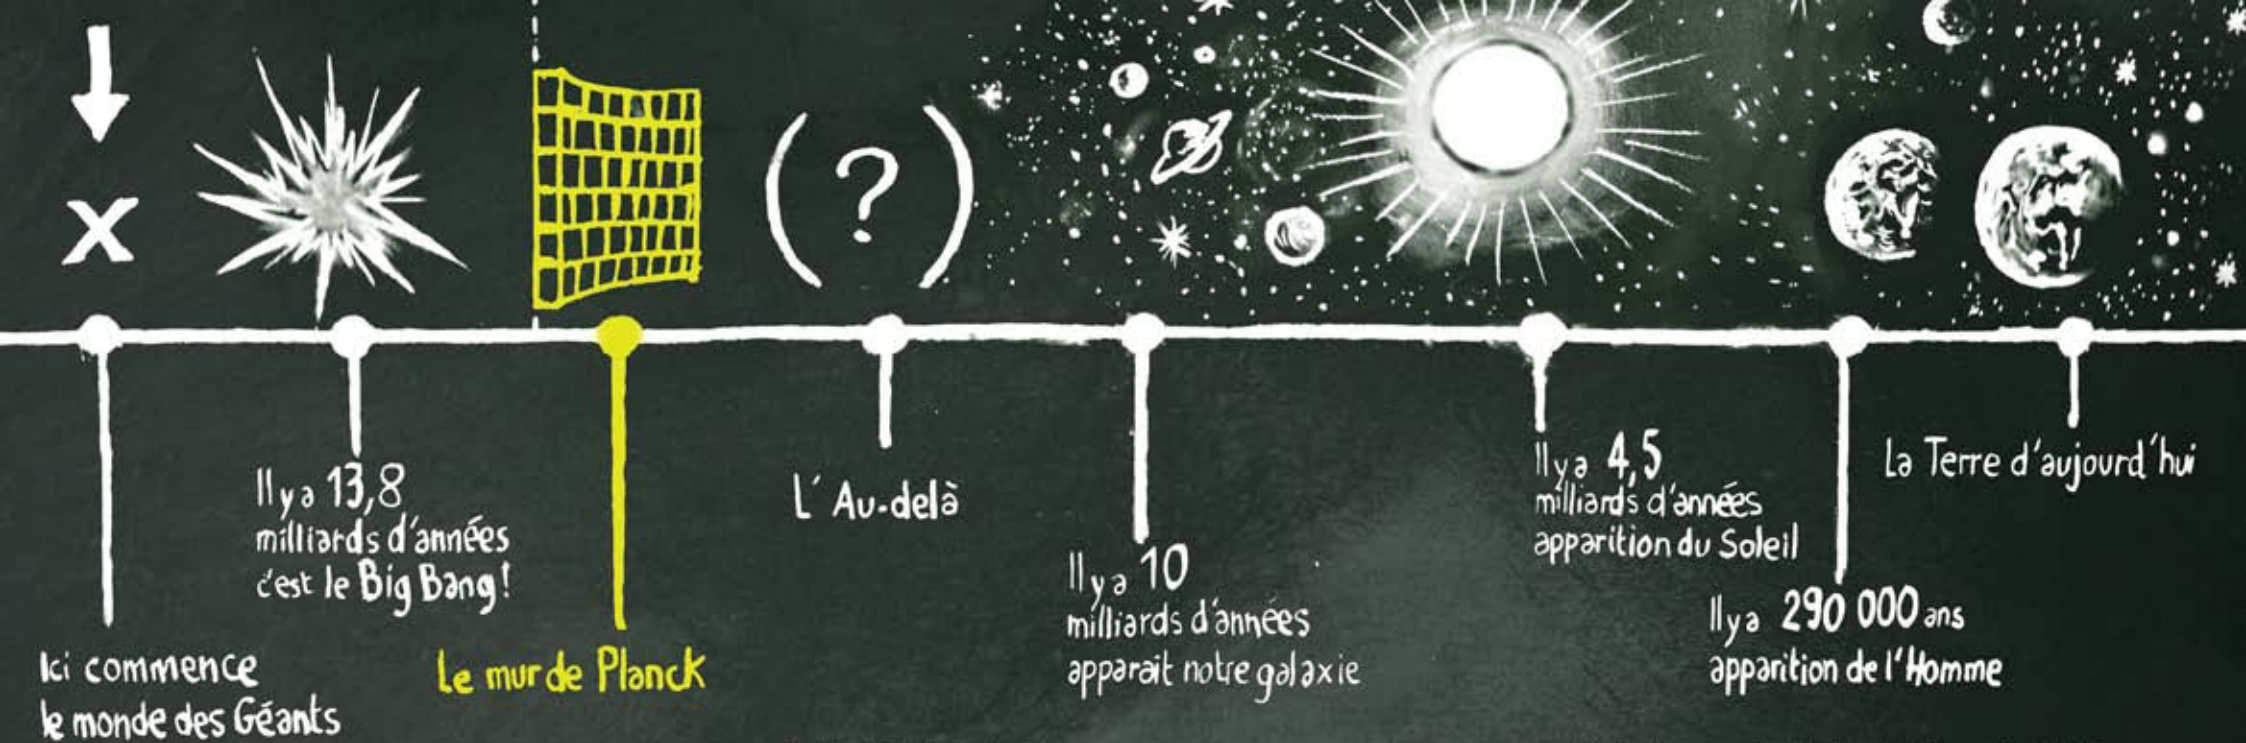 X
(?)
Ici commence
le monde des Géants
Il y a 13,8
milliards d'années
c'est le Big Bang!
Le mur de Planck
L'Au-delà
Il y a 10
milliards d'années
apparait notre galaxie
Il y a 4,5
milliards d'années
apparition du Soleil
Il y a 290 000 ans
apparition de l'Homme
La Terre d'aujourd'hui